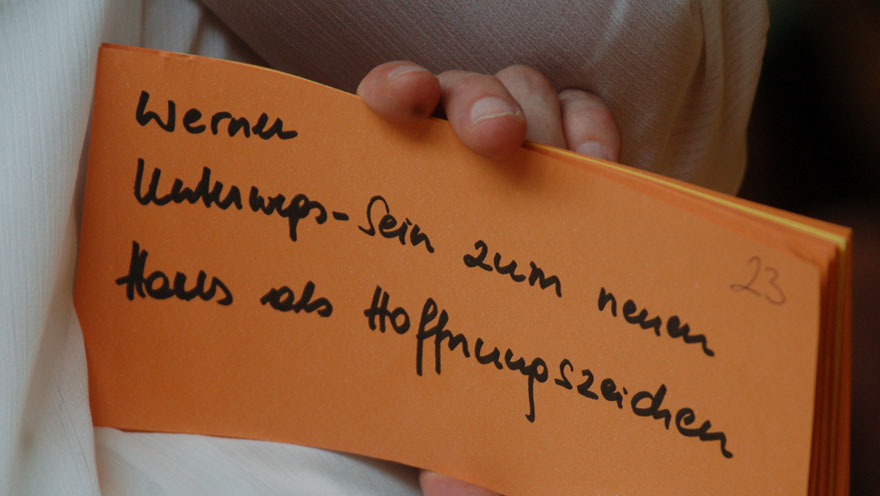 Werner
Unterwegs-Sein zum neuen
Haus als Hoffnungszeichen
23